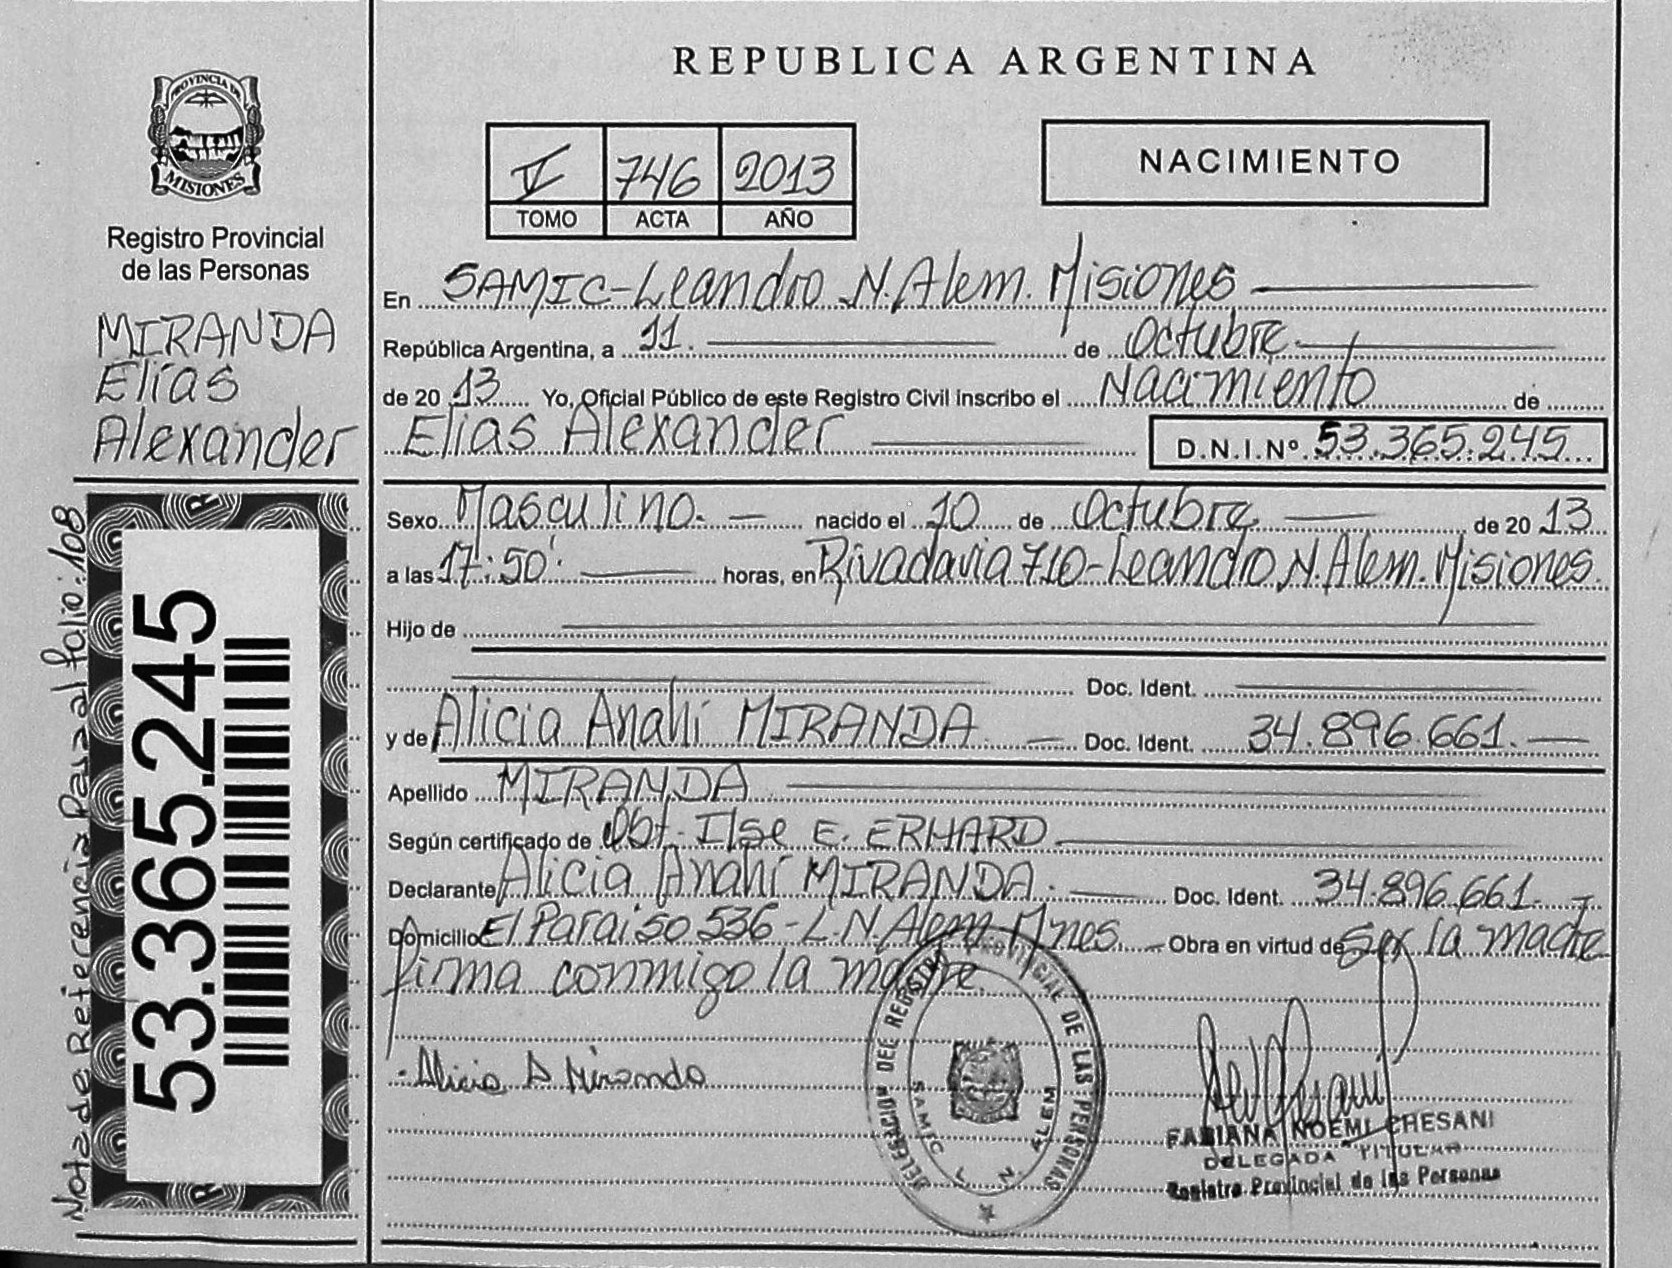 PROVINCIA DE
MISIONES
Registro Provincial
de las Personas
MIRANDA
Elías
Alexander
Nota de Referencia Pasa al folio: 108
53.365.245
REPUBLICA ARGENTINA
V 746 2013
TOMO ACTA AÑO
NACIMIENTO
En SAMIC-Leandro N. Alem. Misiones
República Argentina, a 11. de Octubre.
de 20 13 Yo, Oficial Público de este Registro Civil inscribo el Nacimiento de
Elías Alexander D.N.I.Nº. 53.365.245
Sexo Masculino. nacido el 10 de Octubre de 20 13
a las 17:50' horas, en Rivadavia 710-Leandro N. Alem. Misiones.
Hijo de
Doc. Ident.
y de Alicia Anahí MIRANDA Doc. Ident. 34.896.661.
Apellido MIRANDA
Según certificado de Obt. Ilse E. ERHARD
Declarante Alicia Anahí MIRANDA. Doc. Ident. 34.896.661.
Domicilio El Paraiso 536-L.N. Alem. Mnes. Obra en virtud de ser la madre
firma conmigo la madre.
Alicia A Miranda
DELEGACION DEL REGISTRO PROVINCIAL DE LAS PERSONAS
SAMIC L N ALEM
FABIANA NOEMI CHESANI
DELEGADA TITULAR
Registro Provincial de las Personas